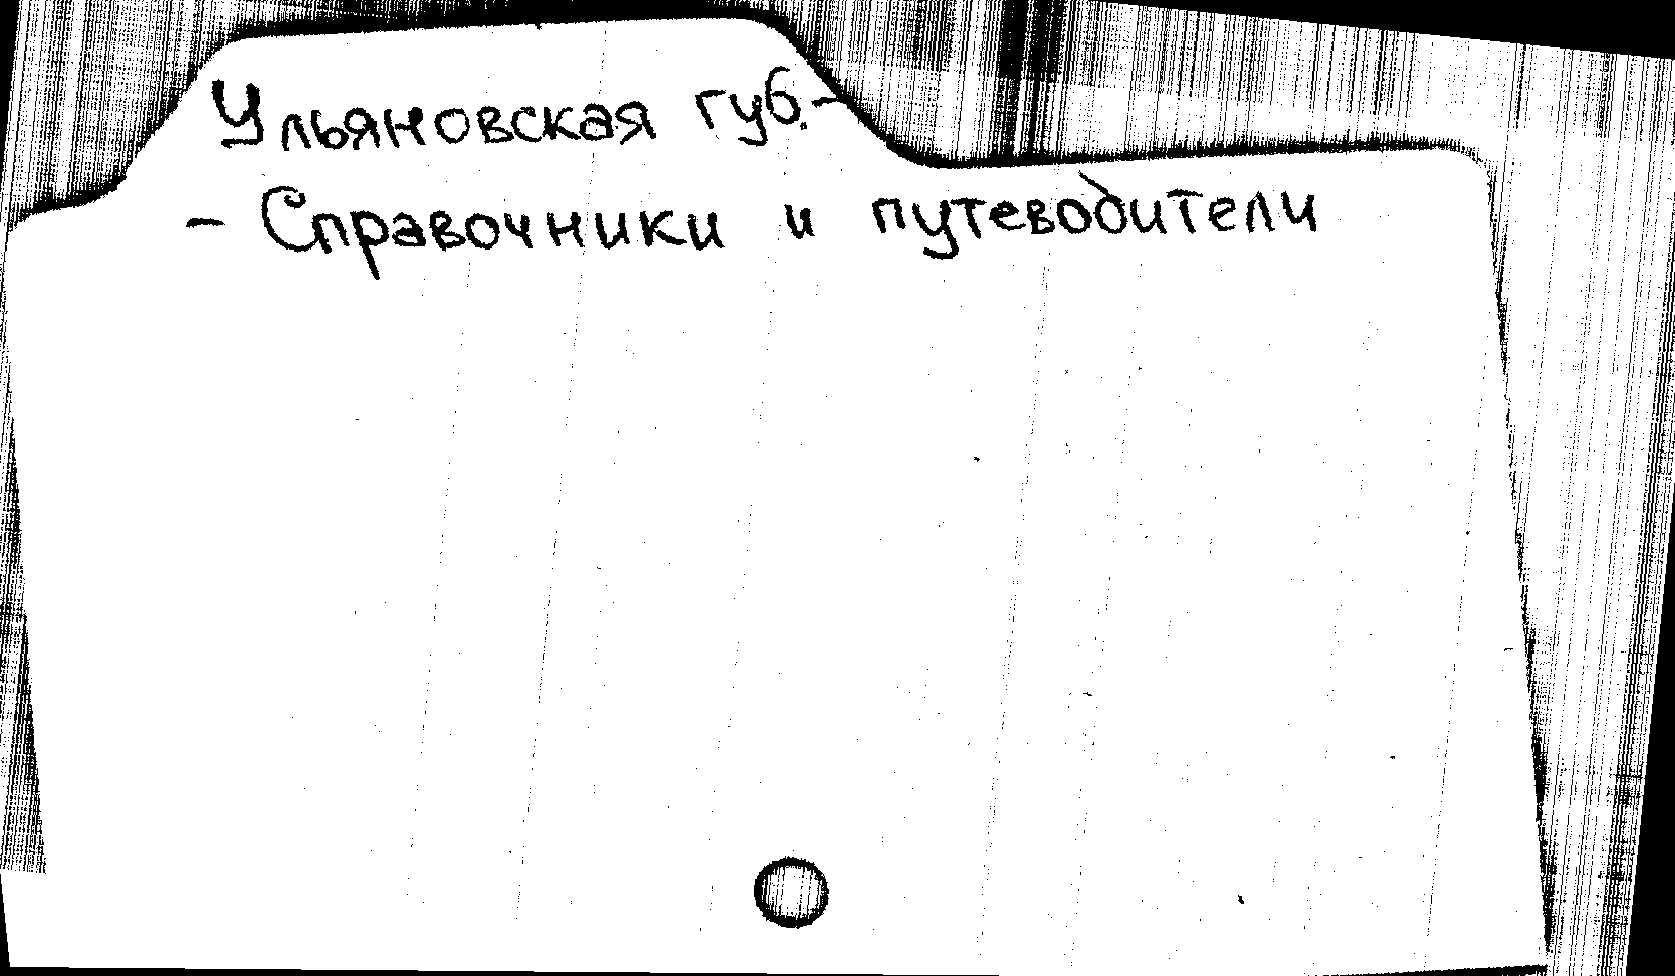 Ульяновская губ.-
- Справочники и путеводители